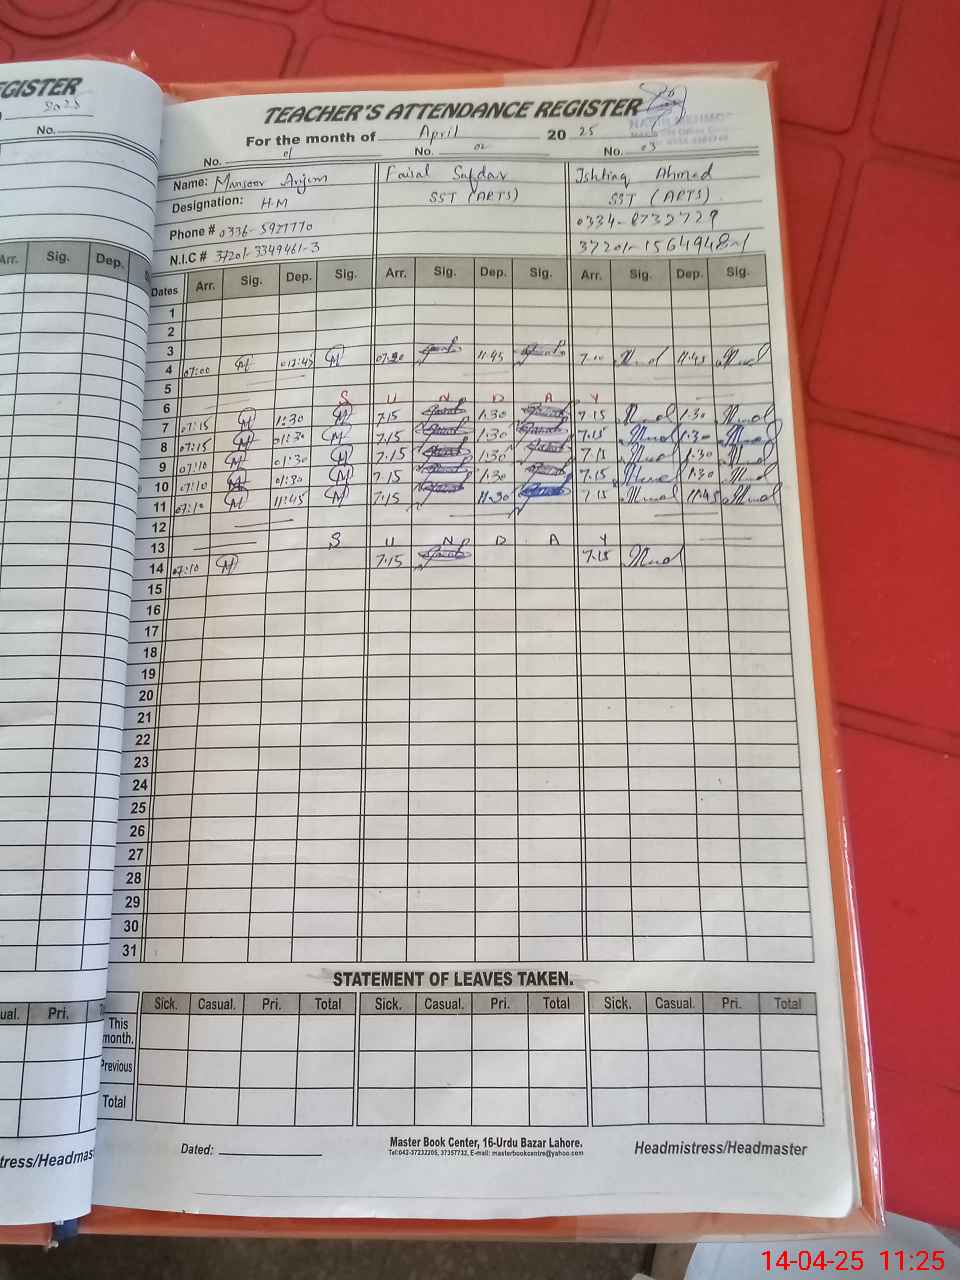 EGISTER
2025
No.
Arr. Sig. Dep.
ual. Pri.
tress/Headmas
TEACHER'S ATTENDANCE REGISTER
For the month of April 20 25
No. 01 No. 02 No. 03
Name: Mansoor Anjum Faisal Safdar Ishtiaq Ahmad
Designation: H.M SST (ARTS) SST (ARTS)
Phone # 0336-5927770 0334-8732729
N.I.C # 37201-3349461-3 37201-1564948-1
Dates Arr. Sig. Dep. Sig. Arr. Sig. Dep. Sig. Arr. Sig. Dep. Sig.
1
2
3
4 07:00 M 012:45 M 07:20 11:45 7.00 11:45
5
6 S U N D A Y
7 07:15 M 1:30 M 7.15 1:30 7.15 1:30
8 07:15 M 01:30 M 7.15 1:30 7.15 1:30
9 07:10 M 01:30 M 7.15 1:30 7.15 1:30
10 07:10 M 01:30 M 7.15 1:30 7.15 1:30
11 07:10 M 11:45 M 7:15 11:30 7.15 11:45
12
13 S U N D A Y
14 07:10 M 7.15 7.15
15
16
17
18
19
20
21
22
23
24
25
26
27
28
29
30
31
STATEMENT OF LEAVES TAKEN.
Sick. Casual. Pri. Total Sick. Casual. Pri. Total Sick. Casual. Pri. Total
This month.
Previous
Total
Dated:
Master Book Center, 16-Urdu Bazar Lahore.
Tel:042-37232205, 37357732, E-mail: masterbookcentre@yahoo.com
Headmistress/Headmaster
14-04-25 11:25